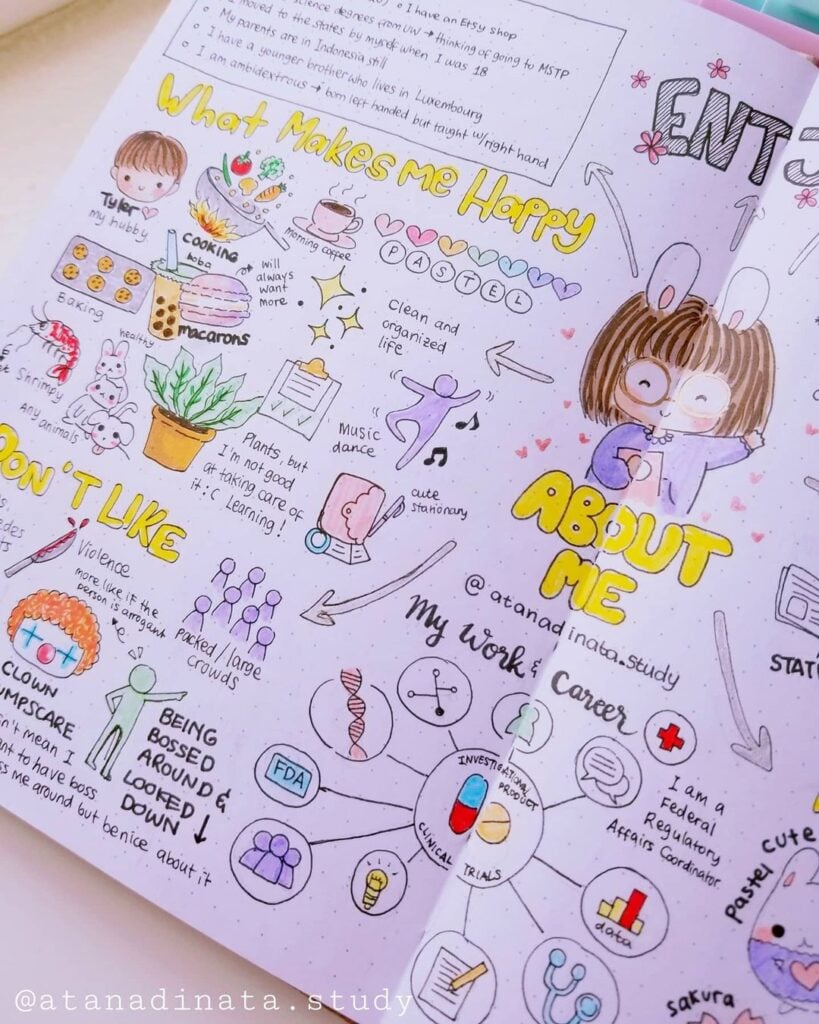 I have an Etsy shop
science degrees from UW → thinking of going to MSTP
I moved to the states by myself when I was 18
My parents are in Indonesia still
I have a younger brother who lives in Luxembourg
I am ambidextrous → born left handed but taught w/ right hand
What Makes me Happy
Tyler
my hubby
COOKING
morning coffee
PASTEL
Baking
boba
will
always
want
more
macarons
healthy
Clean and
organized
life
Shrimpy
Any animals
Plants, but
I'm not good
at taking care of
it :C Learning!
Music
dance
cute
stationary
DON'T LIKE
Violence
more like if the
person is arrogant
packed / large
crowds
CLOWN
JUMPSCARE
BEING
BOSSED
AROUND &
LOOKED
DOWN ↓
mean I
to have boss
me around but be nice about it
ENTJ
ABOUT
ME
@atanadinata.study
My Work &
Career
FDA
INVESTIGATIONAL
PRODUCT
CLINICAL TRIALS
data
I am a
Federal
Regulatory
Affairs Coordinator
STATI
Pastel cute
sakura
@atanadinata.study